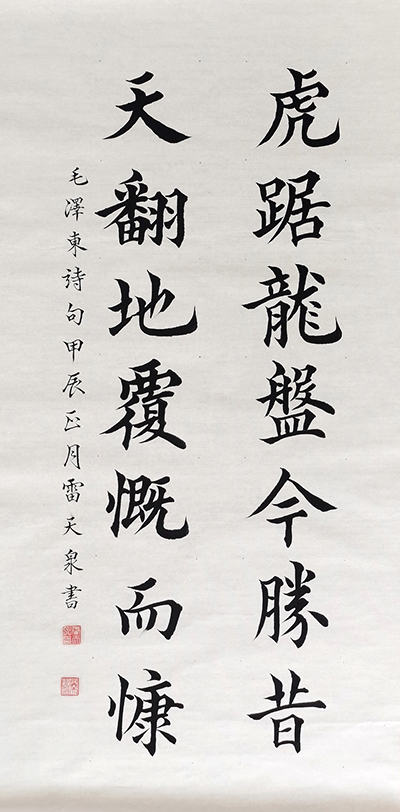 虎踞龍盤今勝昔
天翻地覆慨而慷
毛澤東詩句甲辰正月雷天泉書